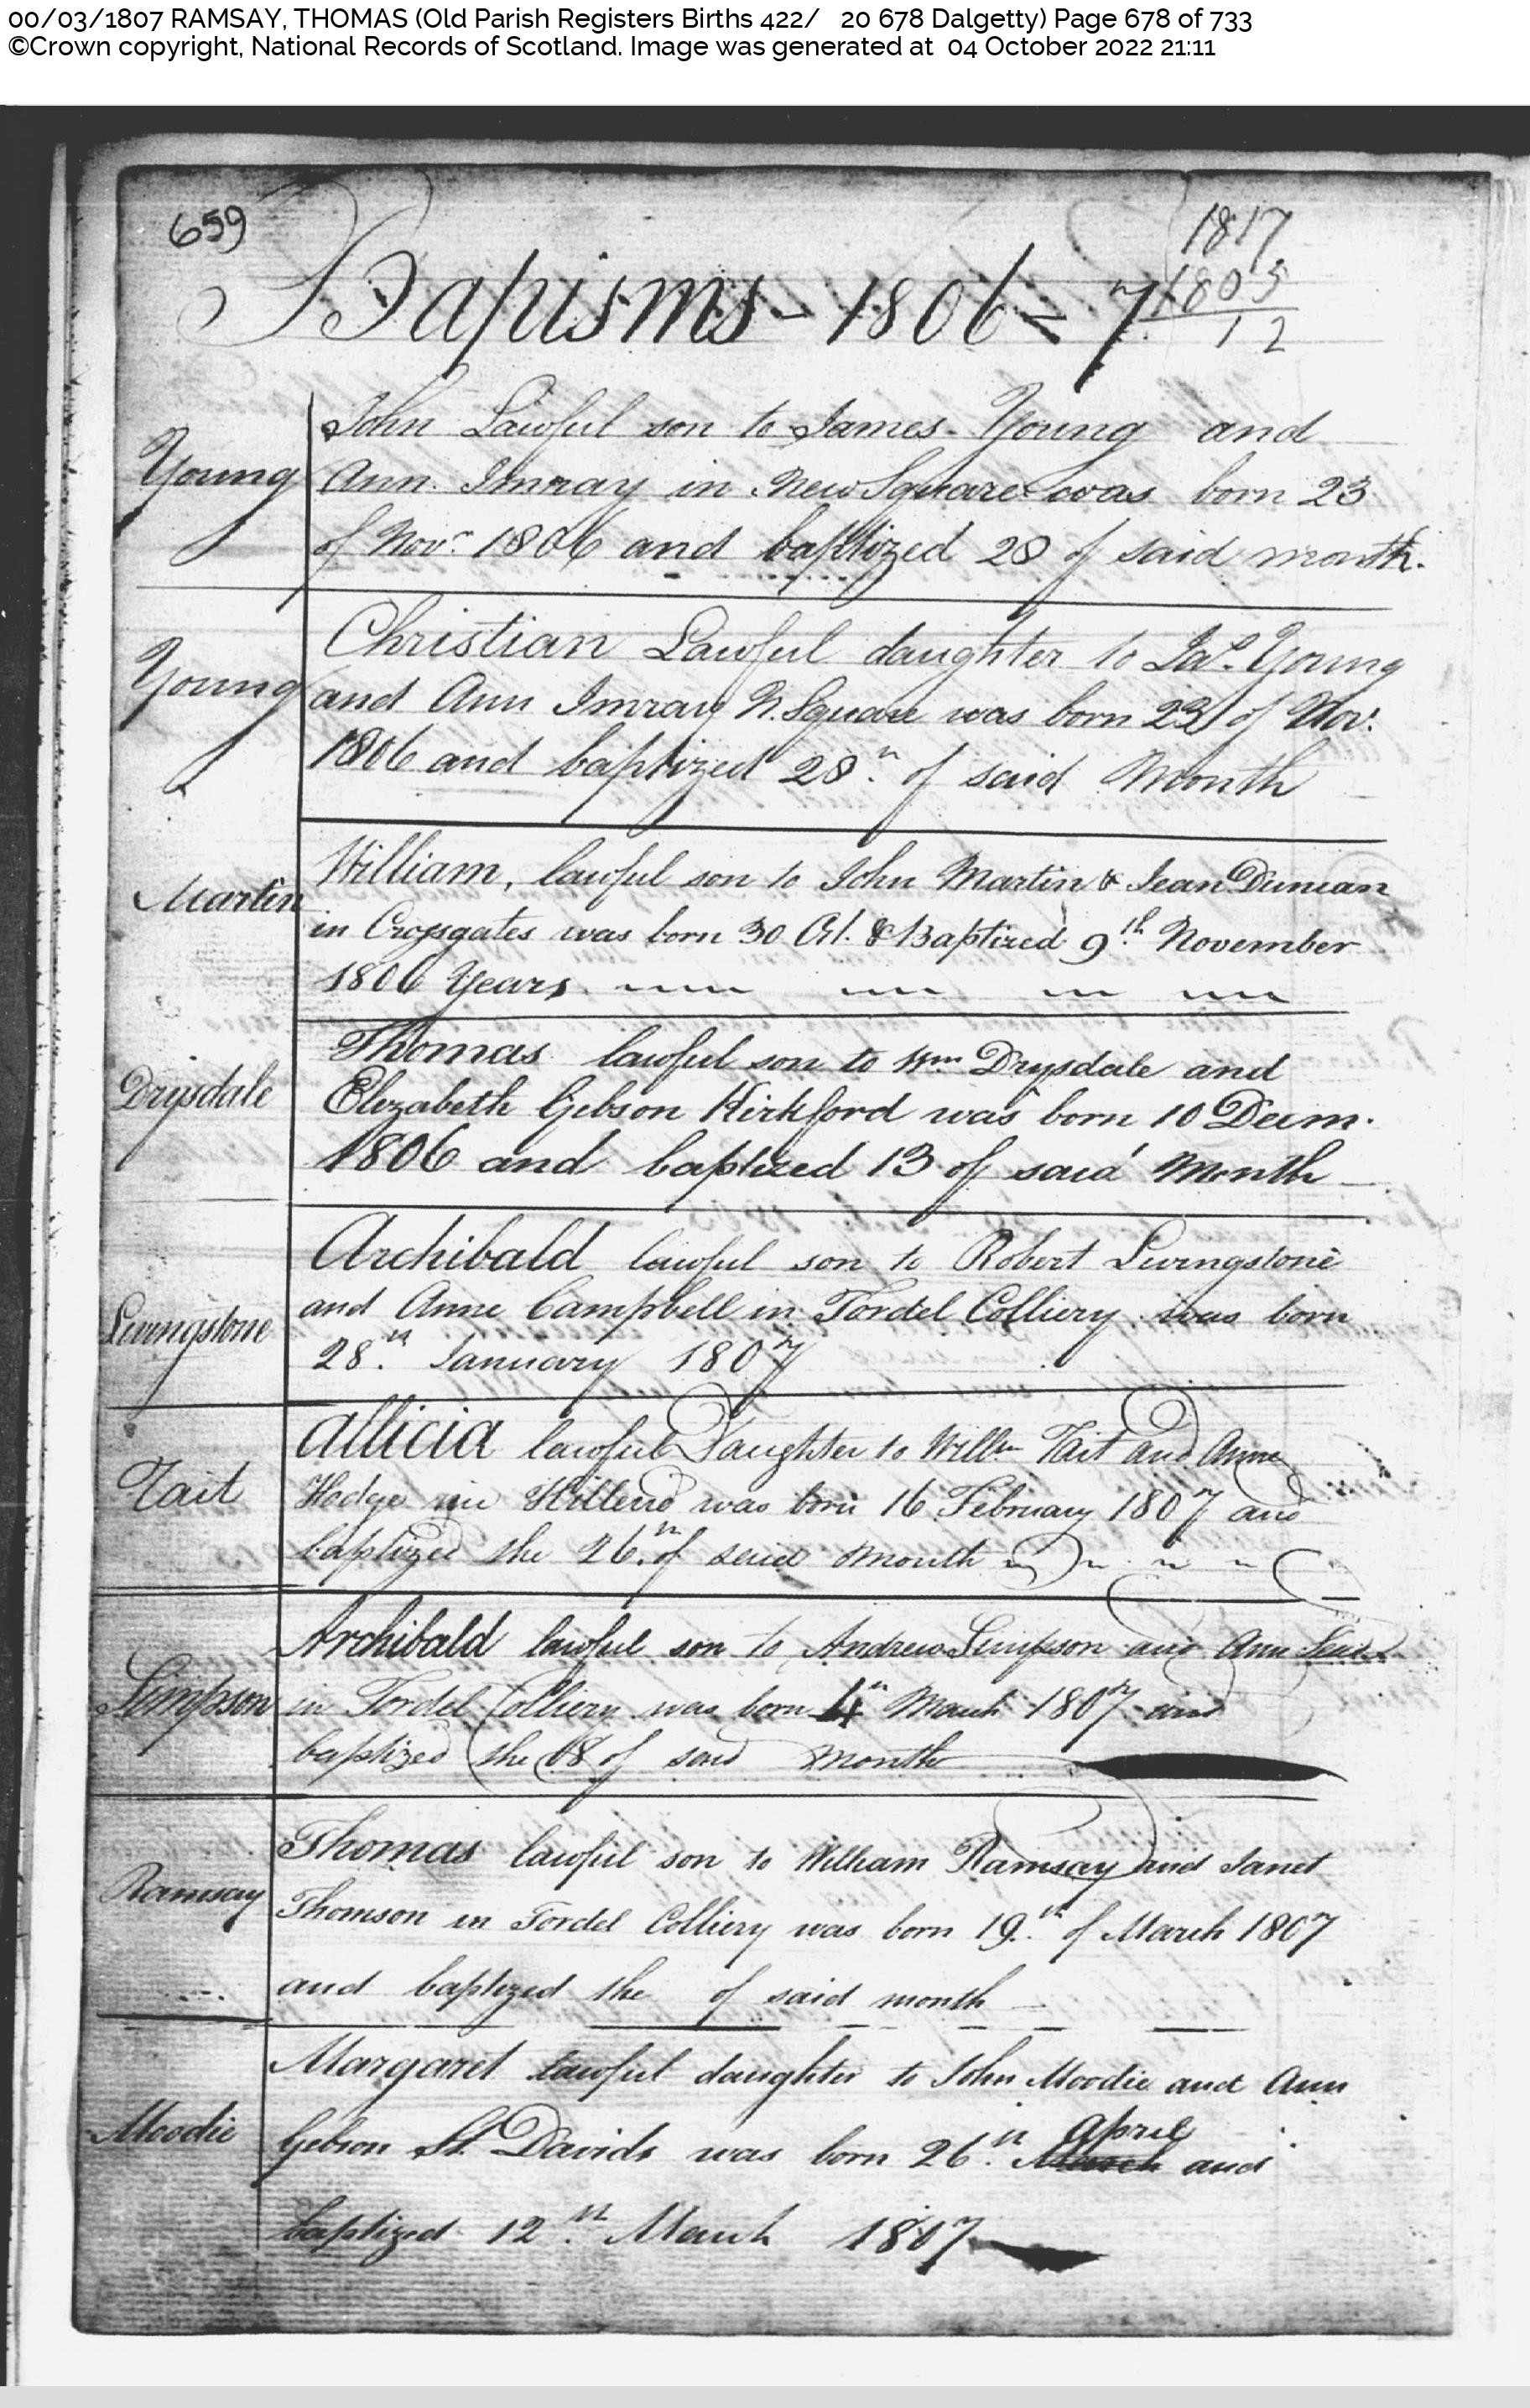 00/03/1807 RAMSAY, THOMAS (Old Parish Registers Births 422/ 20 678 Dalgetty) Page 678 of 733
©Crown copyright, National Records of Scotland. Image was generated at 04 October 2022 21:11
659
1817
1805
12
Bapisms - 1806 = 7
Young
John Lawful son to James Young and
Ann Imray in New Square was born 23
of Novr. 1806 and baptized 28 of said month.
Young
Christian Lawful daughter to Jas. Young
and Ann Imray N. Square was born 23 of Nov.
1806 and baptized 28th of said Month
Martin
William, lawful son to John Martin & Jean Duncan
in Crossgates was born 30 Oct. & Baptized 9th November
1806 Years
Drysdale
Thomas lawful son to Wm Drysdale and
Elizabeth Gibson Kirkford was born 10 Decm.
1806 and baptized 13 of said Month
Livingstone
Archibald lawful son to Robert Livingstone
and Anne Campbell in Fordel Colliery was born
28th January 1807
Tait
Allicia lawful Daughter to Willm Tait and Anne
Hodge in Hillend was born 16 February 1807 and
baptized the 26th of said month
Simpson
Archibald lawful son to Andrew Simpson and Ann
in Fordel Colliery was born 4th March 1807 and
baptized the 08 of said month
Ramsay
Thomas lawful son to William Ramsay and Janet
Thomson in Fordel Colliery was born 19th of March 1807
and baptized the of said month
Moodie
Margaret lawful daughter to John Moodie and Ann
Gibson St. Davids was born 26th March April and
baptized 12th March 1807